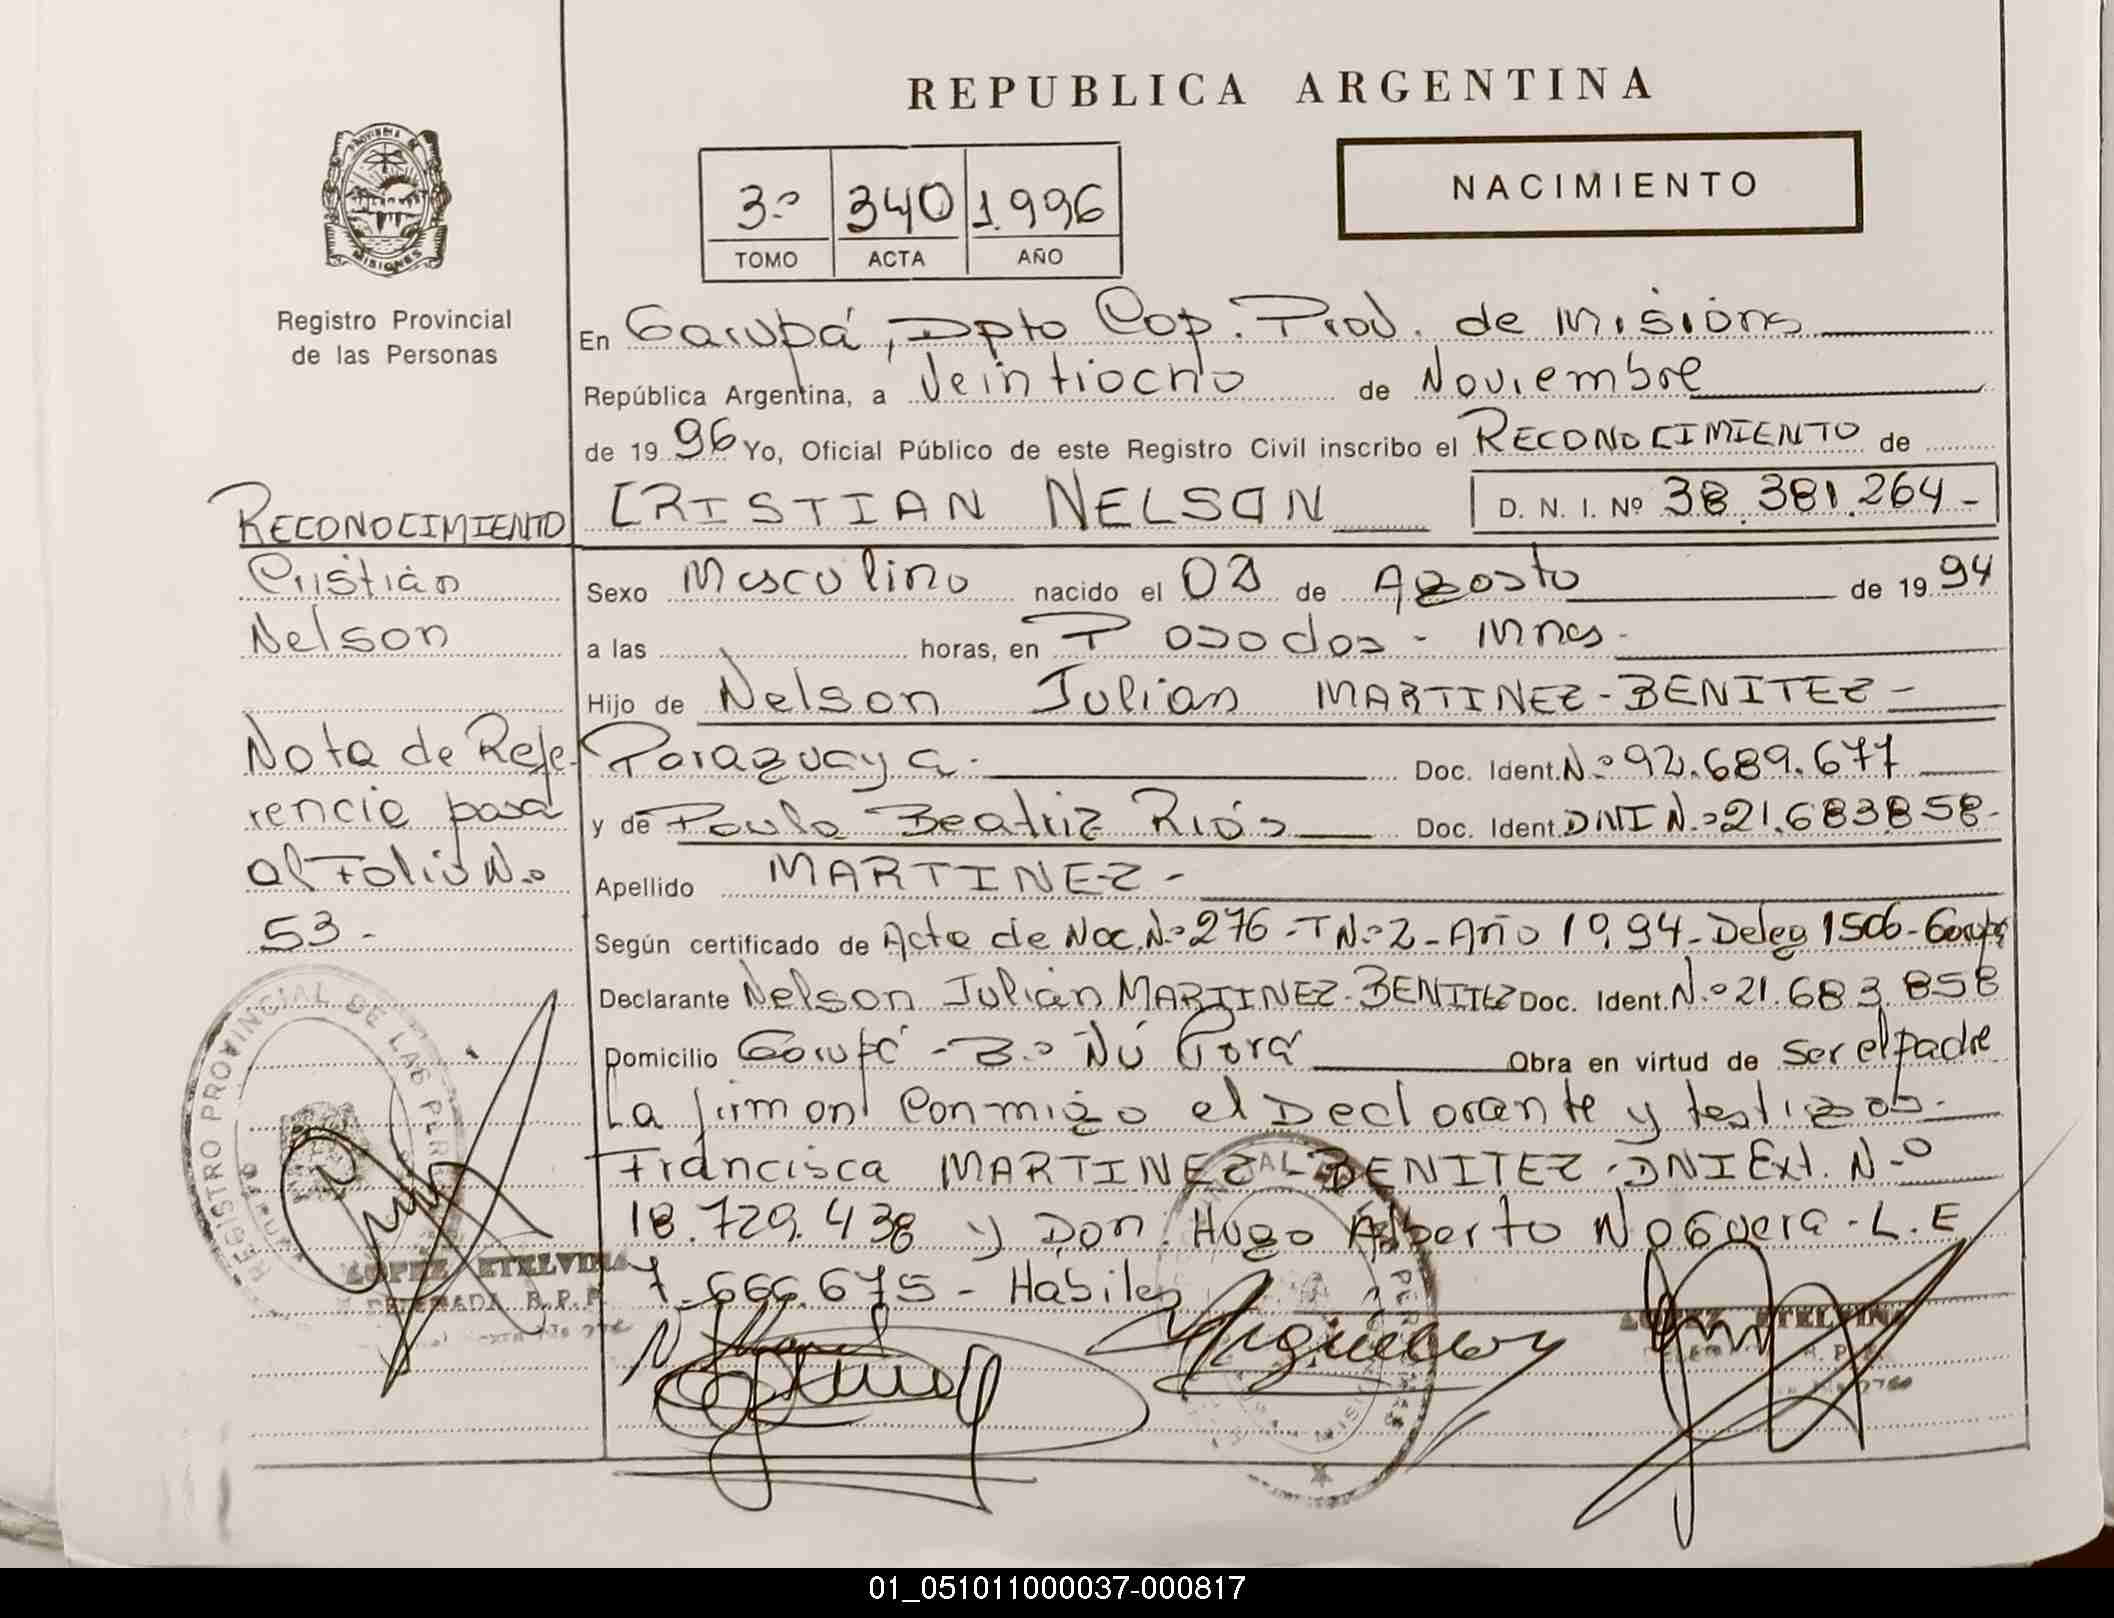 REPUBLICA ARGENTINA
PROVINCIA DE
MISIONES
Registro Provincial
de las Personas
3º 340 1.996
TOMO ACTA AÑO
NACIMIENTO
En Garupá, Dpto Cap. Prov. de Misions
República Argentina, a Veintiocho de Noviembre
de 1996 Yo, Oficial Público de este Registro Civil inscribo el RECONOCIMIENTO de
CRISTIAN NELSON D. N. I. Nº 38.381.264-
RECONOCIMIENTO
Cristián
Nelson
Nota de Refe-
rencia pasa
al Folio N.º
53-
Sexo Masculino nacido el de Agosto de 1994
a las horas, en Posadas - Mnes-
Hijo de Nelson Julián MARTINEZ-BENITEZ-
Paraguaya. Doc. Ident. N.º 92.689.677
y de Paula Beatriz Riós Doc. Ident. DNI N.º 21.683.858-
Apellido MARTINEZ-
Según certificado de Acta de Nac. N.º 276-T N.º 2-Año 1994-Deleg 1506-Garupá
Declarante Nelson Julián MARTINEZ-BENITEZ Doc. Ident. N.º 21.683.858
Domicilio Garupá - B.º Ñú Porá Obra en virtud de ser el padre
La firman conmigo el Declarante y testigos-
Francisca MARTINEZ-BENITEZ-DNI Ext. N.º
18.729.438 y Don. Hugo Alberto Noguera-L.E
7.666.675 - Habiles
REGISTRO PROVINCIAL DE LAS PERSONAS
LOPEZ ETELVINA
DELEGADA R.P.P.
LOPEZ ETELVINA
01_051011000037-000817